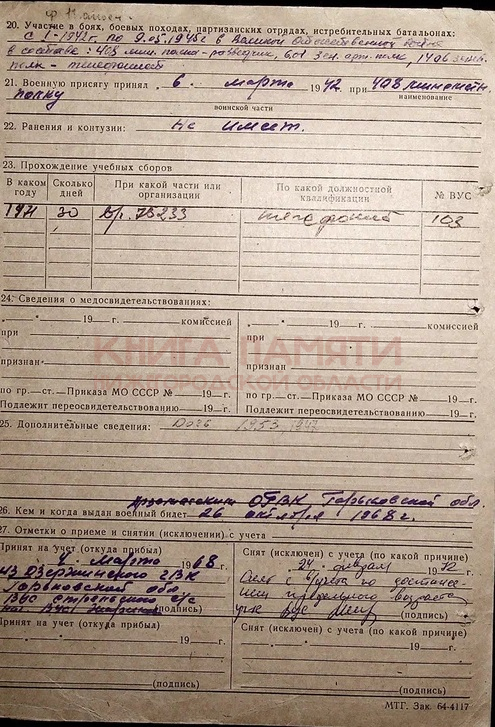 20. Участие в боях, боевых походах, партизанских отрядах, истребительных батальонах:
с 1-1942г. по 9.05.1945г в Великой Отечественной войне
в составе: 408 мин. полка - разведчик, 601 зен. арт. полк, 1406 зен.
полк - телефонист
21. Военную присягу принял „ 6 " марта 1942 при 408 минометн.
наименование
полку
воинской части
22. Ранения и контузии: Не имеет.
23. Прохождение учебных сборов
В каком году | Сколько дней | При какой части или организации | По какой должностной квалификации | № ВУС
1971 | 30 | 78233 | телефонист | 103
24. Сведения о медосвидетельствованиях:
„ " 19 г. комиссией
при
признан
по гр.—ст.—Приказа МО СССР №
Подлежит переосвидетельствованию 19 г.
„ " 19 г. комиссией
при
признан
по гр.—ст.—Приказа МО СССР №
Подлежит переосвидетельствованию 19 г.
КНИГА ПАМЯТИ
НИЖЕГОРОДСКОЙ ОБЛАСТИ
25. Дополнительные сведения: 1953, 1947
ОГВК Горьковской обл.
26. Кем и когда выдан военный билет 26 октября 1968 г.
27. Отметки о приеме и снятии (исключении) с учета
Принят на учет (откуда прибыл)
„ 4 " марта 1968 г.
из Дзержинского ГВК
Горьковской обл.
(подпись)
Снят (исключен) с учета (по какой причине)
„ 24 " февраля 1972 г.
Снят с учета по достиже-
нии предельного возраста
(подпись)
Принят на учет (откуда прибыл)
„ " 19 г.
(подпись)
Снят (исключен) с учета (по какой причине)
„ " 19 г.
(подпись)
МТГ. Зак. 64-4117